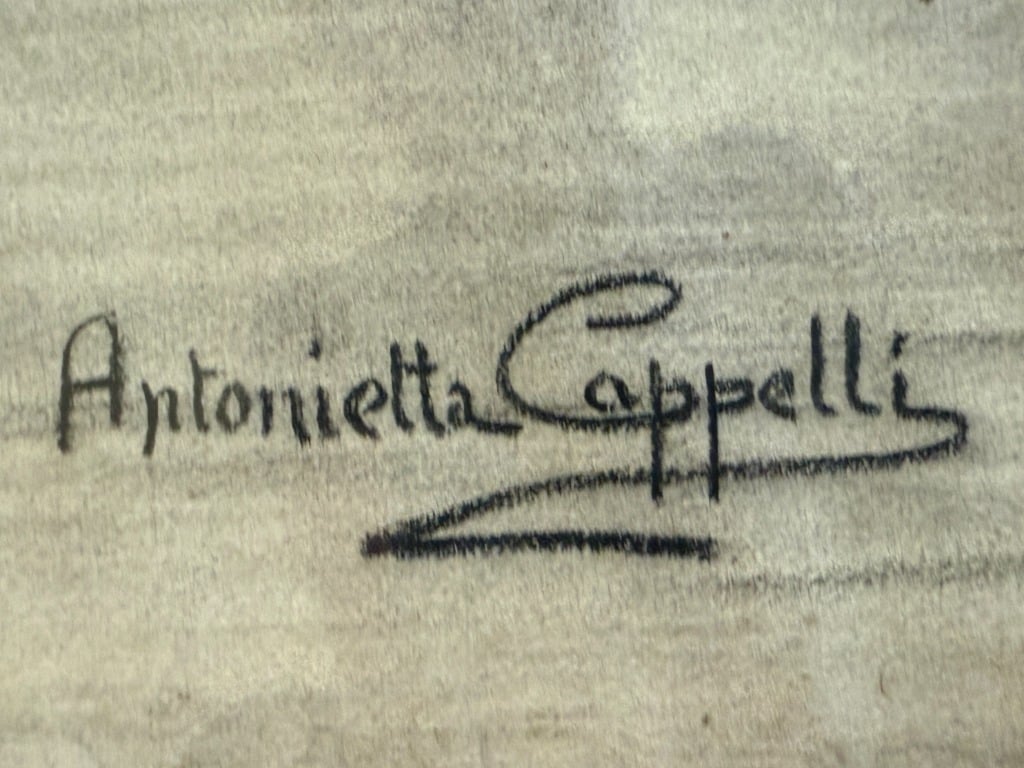 Antonietta Cappelli